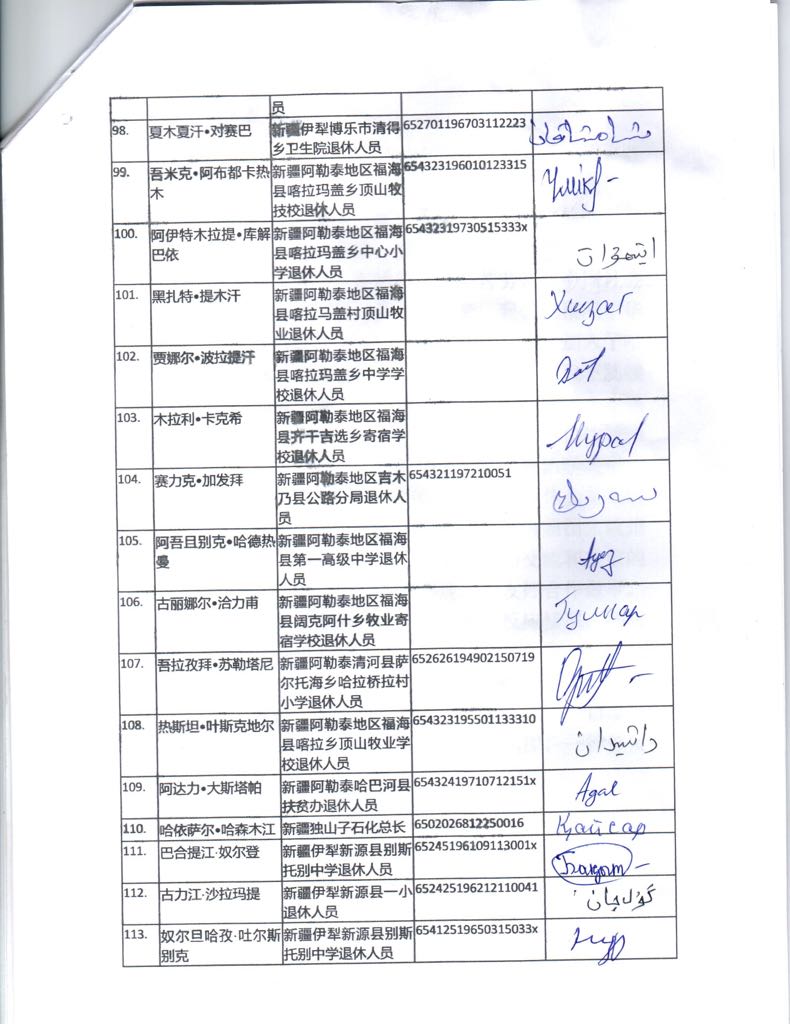 员
98. 夏木夏汗•对赛巴 新疆伊犁博乐市清得 652701196703112223
乡卫生院退休人员
99. 吾米克•阿布都卡热 新疆阿勒泰地区福海 654323196010123315
木 县喀拉玛盖乡顶山牧
技校退休人员
100. 阿伊特木拉提•库解 新疆阿勒泰地区福海 65432319730515333x
巴依 县喀拉玛盖乡中心小
学退休人员
101. 黑扎特•提木汗 新疆阿勒泰地区福海
县喀拉马盖村顶山牧
业退休人员
102. 贾娜尔•波拉提汗 新疆阿勒泰地区福海
县喀拉玛盖乡中学学
校退休人员
103. 木拉利•卡克希 新疆阿勒泰地区福海
县齐干吉迭乡寄宿学
校退休人员
104. 赛力克•加发拜 新疆阿勒泰地区吉木 654321197210051
乃县公路分局退休人
员
105. 阿吾且别克•哈德热 新疆阿勒泰地区福海
曼 县第一高级中学退休
人员
106. 古丽娜尔•洽力甫 新疆阿勒泰地区福海
县阔克阿什乡牧业寄
宿学校退休人员
107. 吾拉孜拜•苏勒塔尼 新疆阿勒泰清河县萨 652626194902150719
尔托海乡哈拉桥拉村
小学退休人员
108. 热斯坦•叶斯克地尔 新疆阿勒泰地区福海 654323195501133310
县喀拉乡顶山牧业学
校退休人员
109. 阿达力•大斯塔帕 新疆阿勒泰哈巴河县 65432419710712151x Agal
扶贫办退休人员
110. 哈依萨尔•哈森木江 新疆独山子石化总长 6502026812250016 Қайсар
111. 巴合提江·奴尔登 新疆伊犁新源县别斯 65245196109113001x
托别中学退休人员
112. 古力江·沙拉玛提 新疆伊犁新源县一小 652425196212110041 گۇلجان
退休人员
113. 奴尔旦哈孜·吐尔斯 新疆伊犁新源县别斯 65412519650315033x
别克 托别中学退休人员